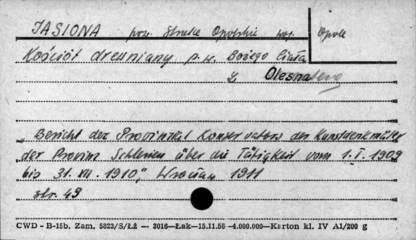 JASIONA pow. Strzelce Opolskie woj. Opole
Kościół drewniany p.w. Bożego Ciała
z Olesna
"Bericht des Provinzial Konservators der Kunstdenkmäler
der Provinz Schlesien über die Tätigkeit vom 1.I.1909
bis 31.XII.1910", Wrocław 1911
str. 49
CWD - B-15b. Zam. 5823/S/ŁŻ — 3016—Łąk—15.11.56 -4.000.000—Karton kl. IV A1/200 g